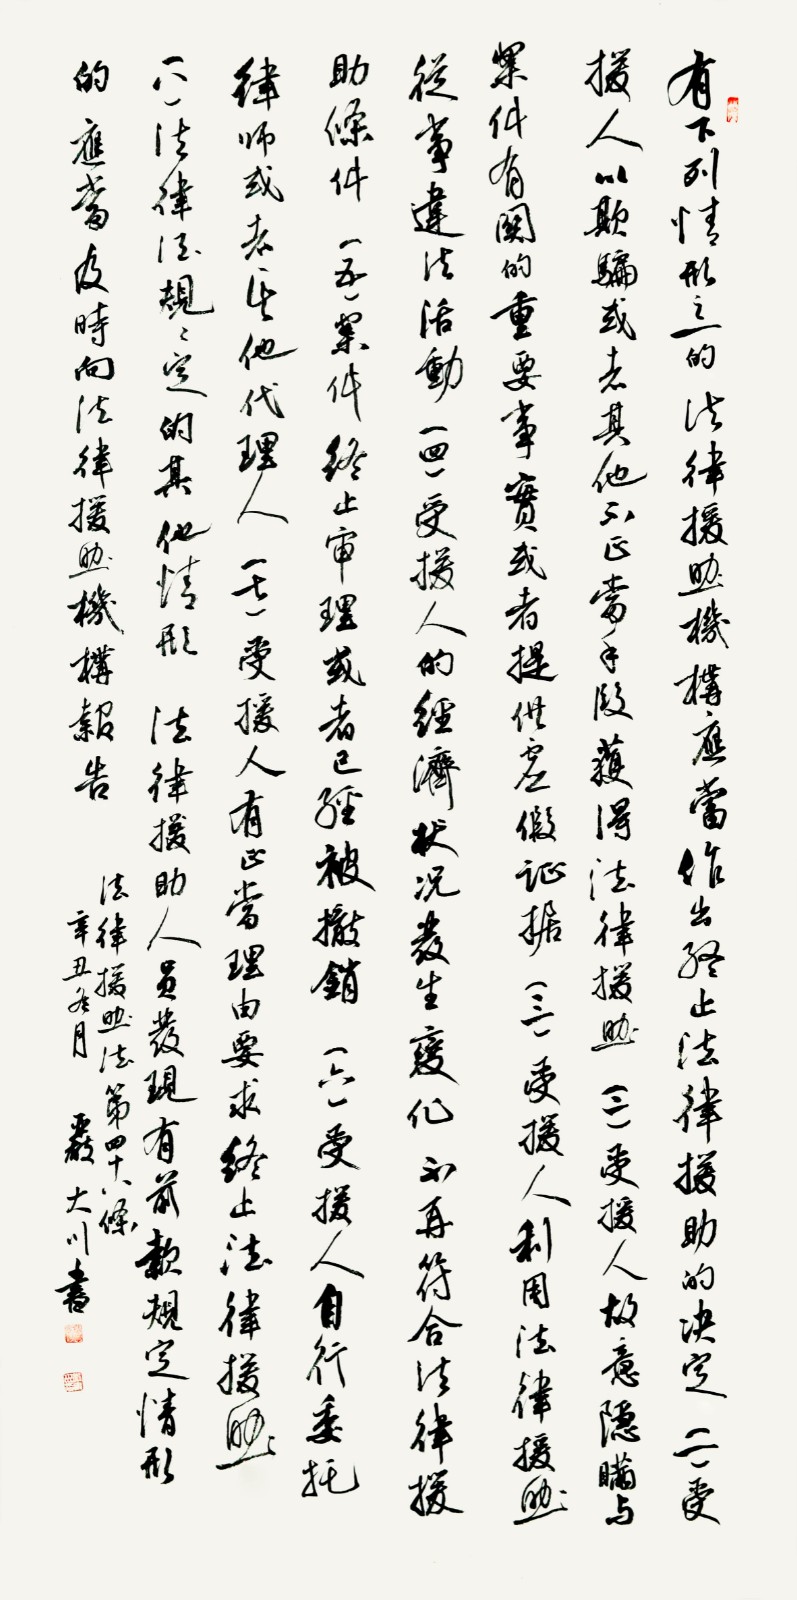 有下列情形之一的法律援助機構應當作出終止法律援助的决定（一）受
援人以欺騙或者其他不正當手段獲得法律援助（二）受援人故意隱瞞与
案件有關的重要事實或者提供虚假证据（三）受援人利用法律援助
從事違法活動（四）受援人的經濟状况發生變化不再符合法律援
助條件（五）案件終止审理或者已經被撤銷（六）受援人自行委托
律师或者其他代理人（七）受援人有正當理由要求終止法律援助
（八）法律法規規定的其他情形 法律援助人員發現有前款規定情形
的應當及時向法律援助機構報告
法律援助法第四十八條
辛丑冬月 嚴大川書